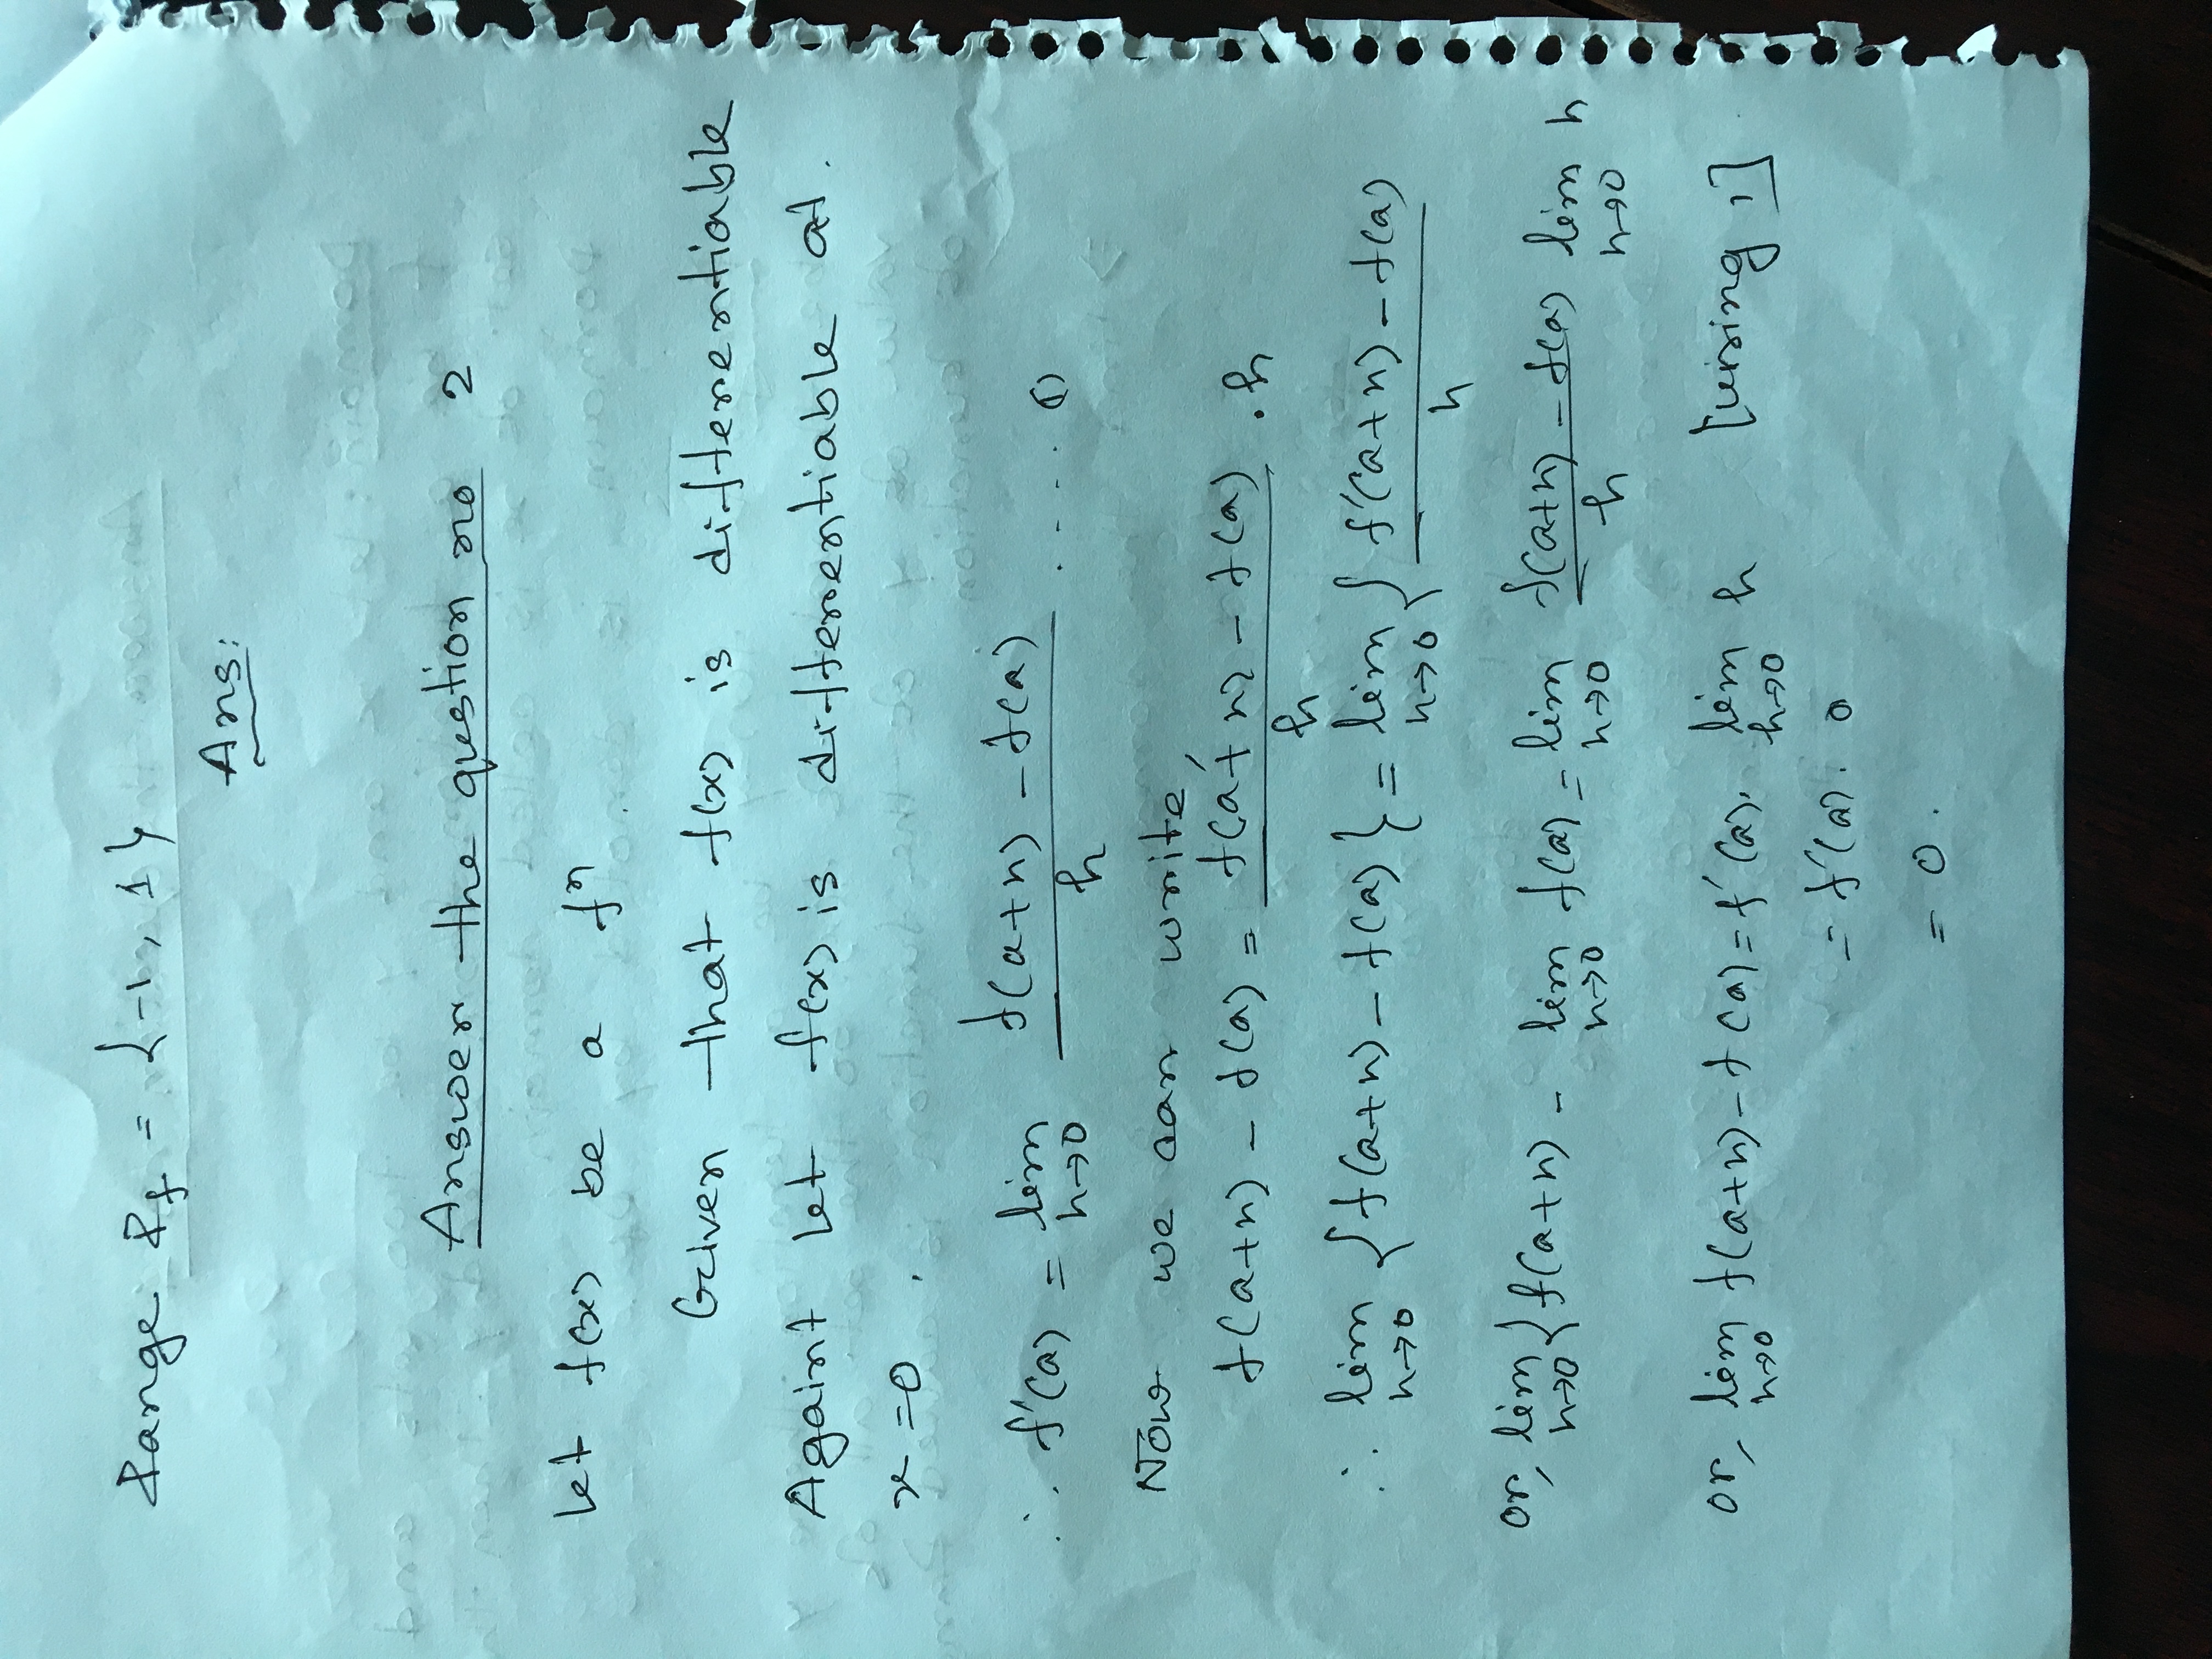 Range R_f = {-1, 1}
Ans:
Answer the qustion no 2
Let f(x) be a fⁿ.
Given that f(x) is differentiable
Againt Let f(x) is differentiable at.
x = 0.
∴ f'(a) = lim_{h→0} \frac{f(a+h) - f(a)}{h} ..... (1)
Now we can write,
f(a+h) - f(a) = \frac{f(a+h) - f(a)}{h} . h
∴ lim_{h→0} {f(a+h) - f(a)} = lim_{h→0} { \frac{f'(a+h) - f(a)}{h}
or, lim_{h→0} {f(a+h) - lim_{h→0} f(a) = lim_{h→0} \frac{f(a+h) - f(a)}{h} lim_{h→0} h
or, lim_{h→0} f(a+h) - f(a) = f'(a). lim_{h→0} h [using 1]
= f'(a). 0
= 0.